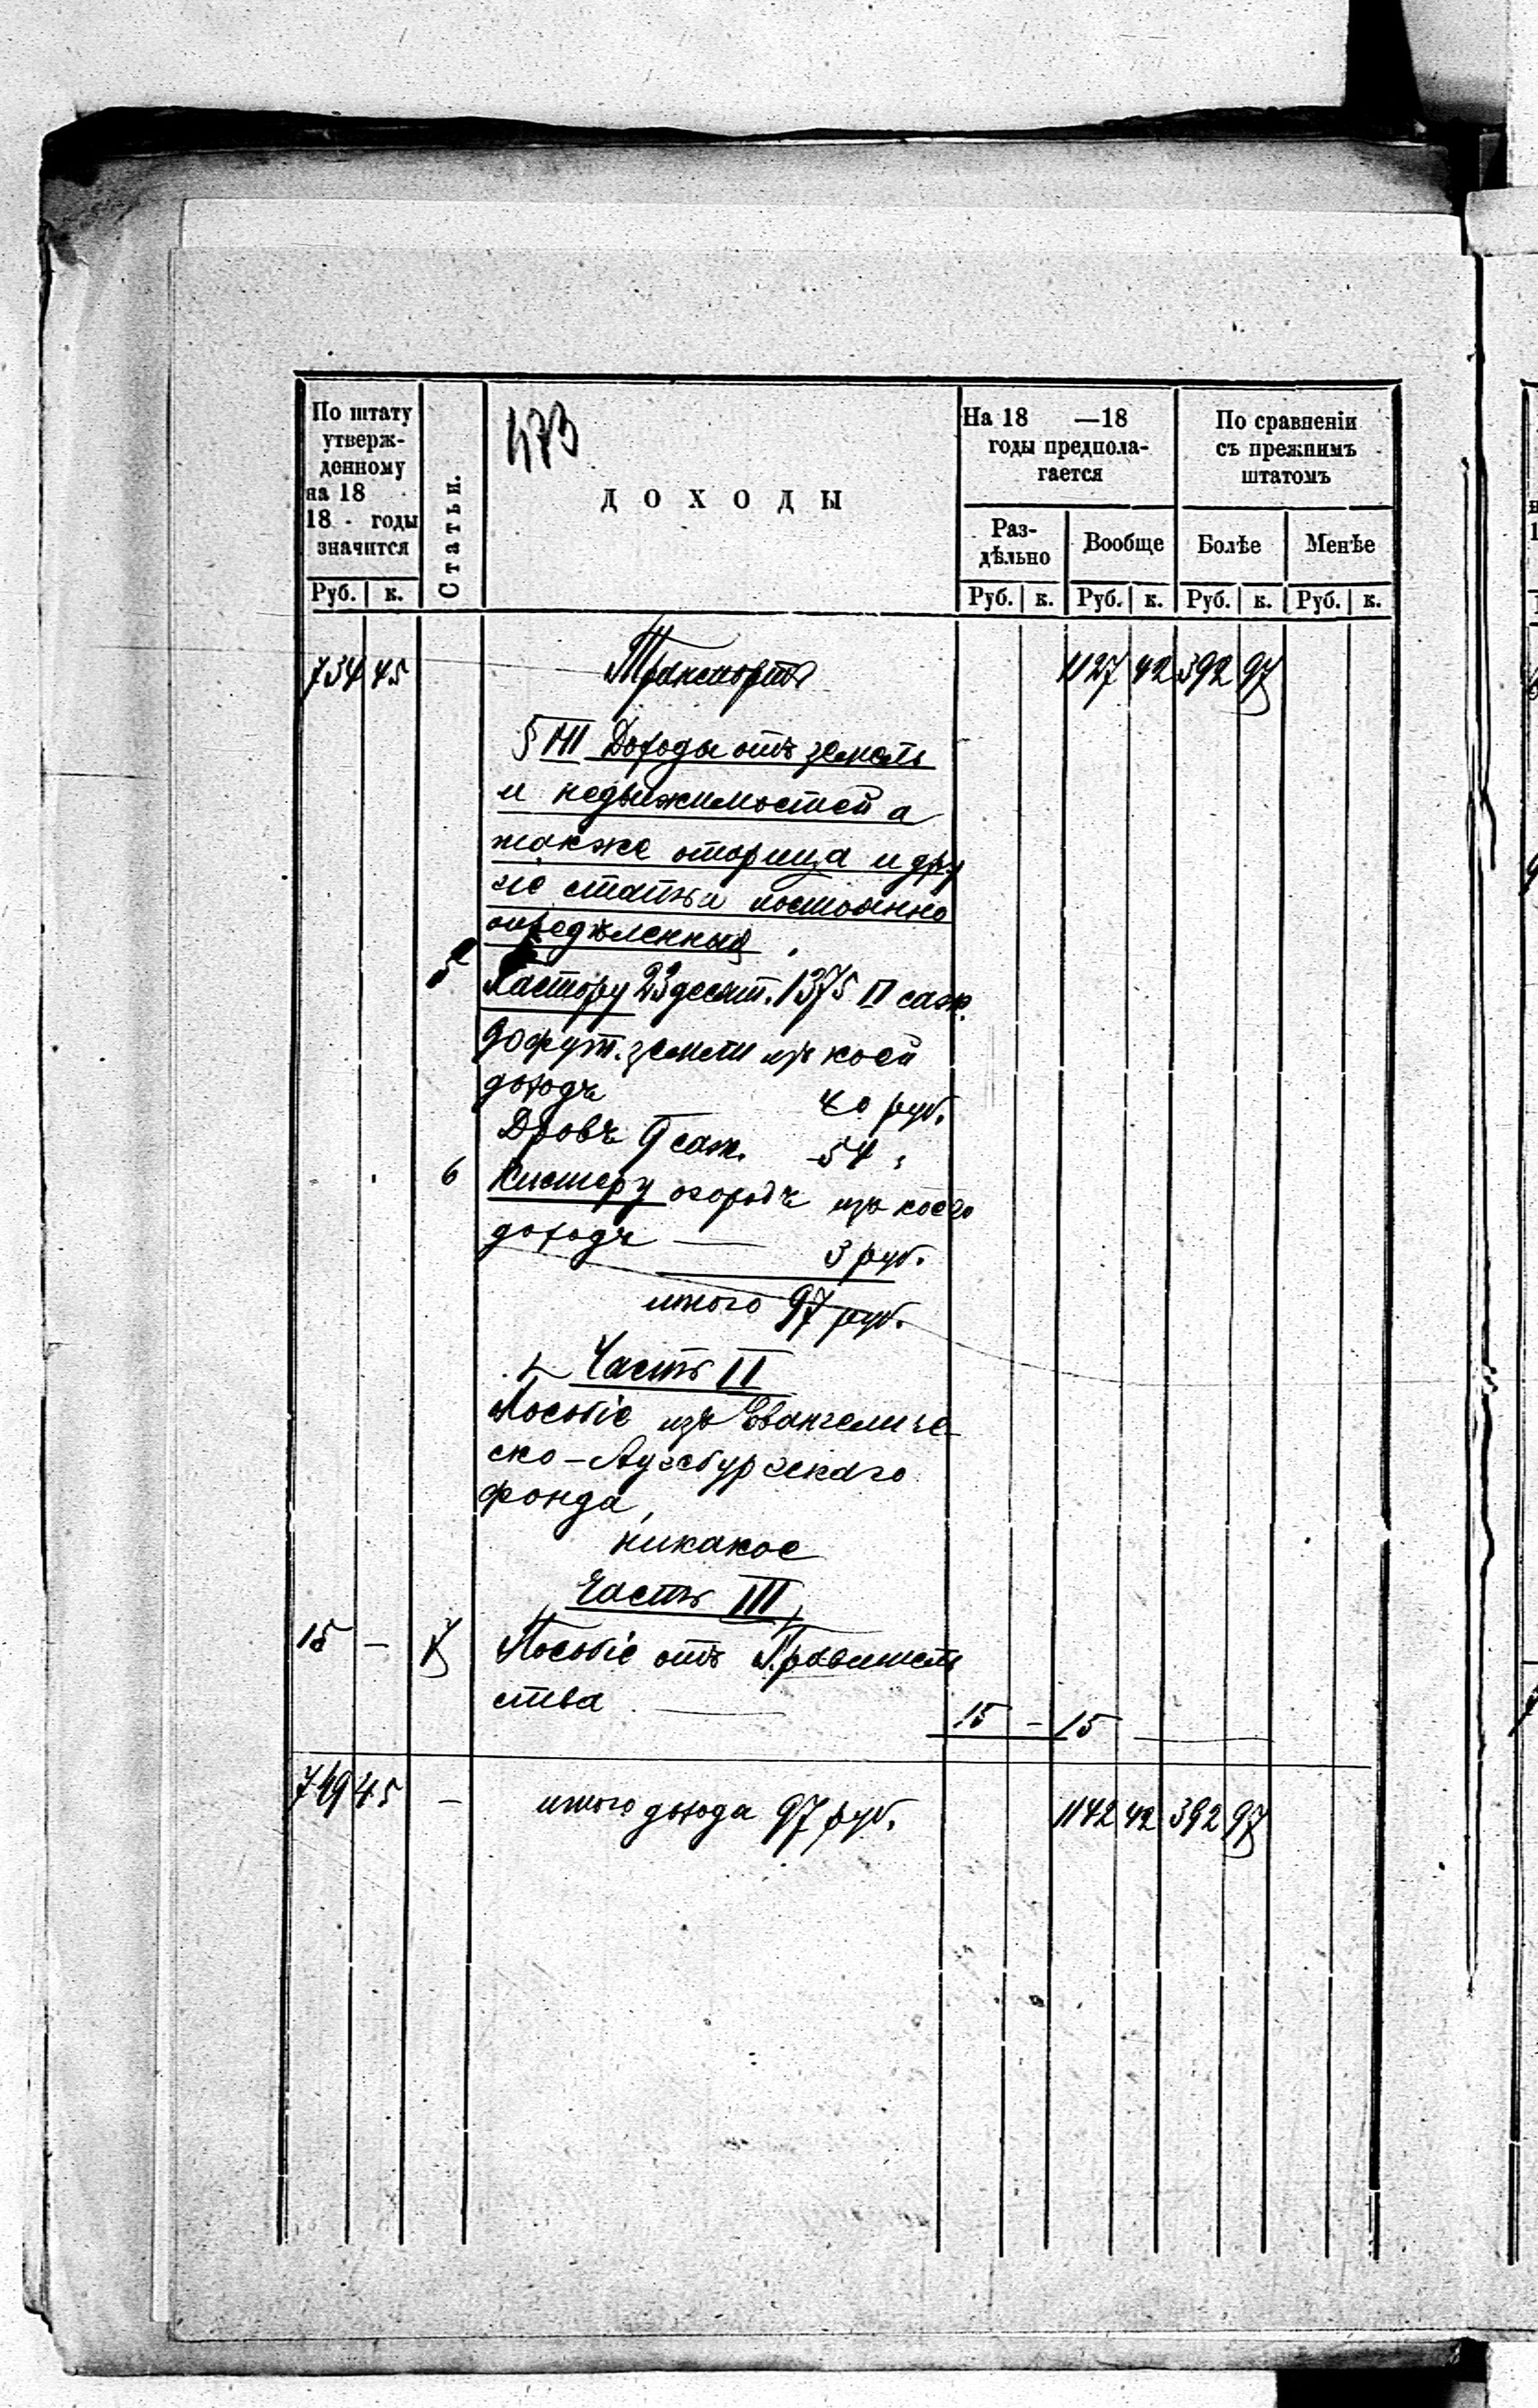 По штату утверж-
денному
на 18
18 - годы
значится
Руб. к.
Статьи.
473
ДОХОДЫ
На 18 —18
годы предпола-
гается
Раз-
дѣльно
Вообще
По сравненіи
съ прежнимъ
штатомъ
Болѣе
Менѣе
Руб. к. Руб. к. Руб. к. Руб. к.
734 45 Транспортъ 1127 42 392 97
§ III Доходы отъ земель
и недвижимостей а
также и дру
гіе статьи постоянно
опредѣленныя
5 Пастору 23 десят. 1375 □ саж.
земли изъ коей
доходъ 40 руб.
Дровъ 9 саж. 54 "
6 Кистеру огородъ изъ коего
доходъ — 3 руб.
итого 97 руб.
Часть II
Пособіе изъ Евангеличе-
ско-Аугсбургскаго
фонда
никакое
Часть III
15 — 7 Пособіе отъ Правитель
ства — 15 — 15 —
749 45 — итого дохода 97 руб. 1142 42 392 97